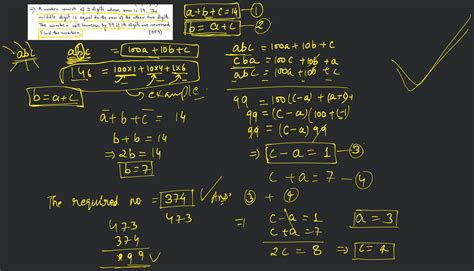 A number consist of 3 digits whose sum is 14. The
middle digit is equal to the sum of the other two digits.
The number will increase by 99 if its digits are reversed.
Find the number.
a+b+c=14 —①
b=a+c —②
abc
abc = 100a+10b+c
146 = 100×1+10×4+1×6
example
b=a+c
a+b+c = 14
b+b = 14
⇒ 2b = 14
b=7
The required no = 374 ✓ Ans
473
473
374
99 ✓
abc = 100a+10b+c
cba = 100c+10b+a
abc = 100a+10b+c
99 = 100(c-a)+(a-c)
99 = (c-a)(100+(-1)
99 = (c-a)99
⇒ c-a=1 —③
c+a=7 —④
③ + ④
⇒ c-a=1
c+a=7
2c=8 ⇒ c=4
a=3